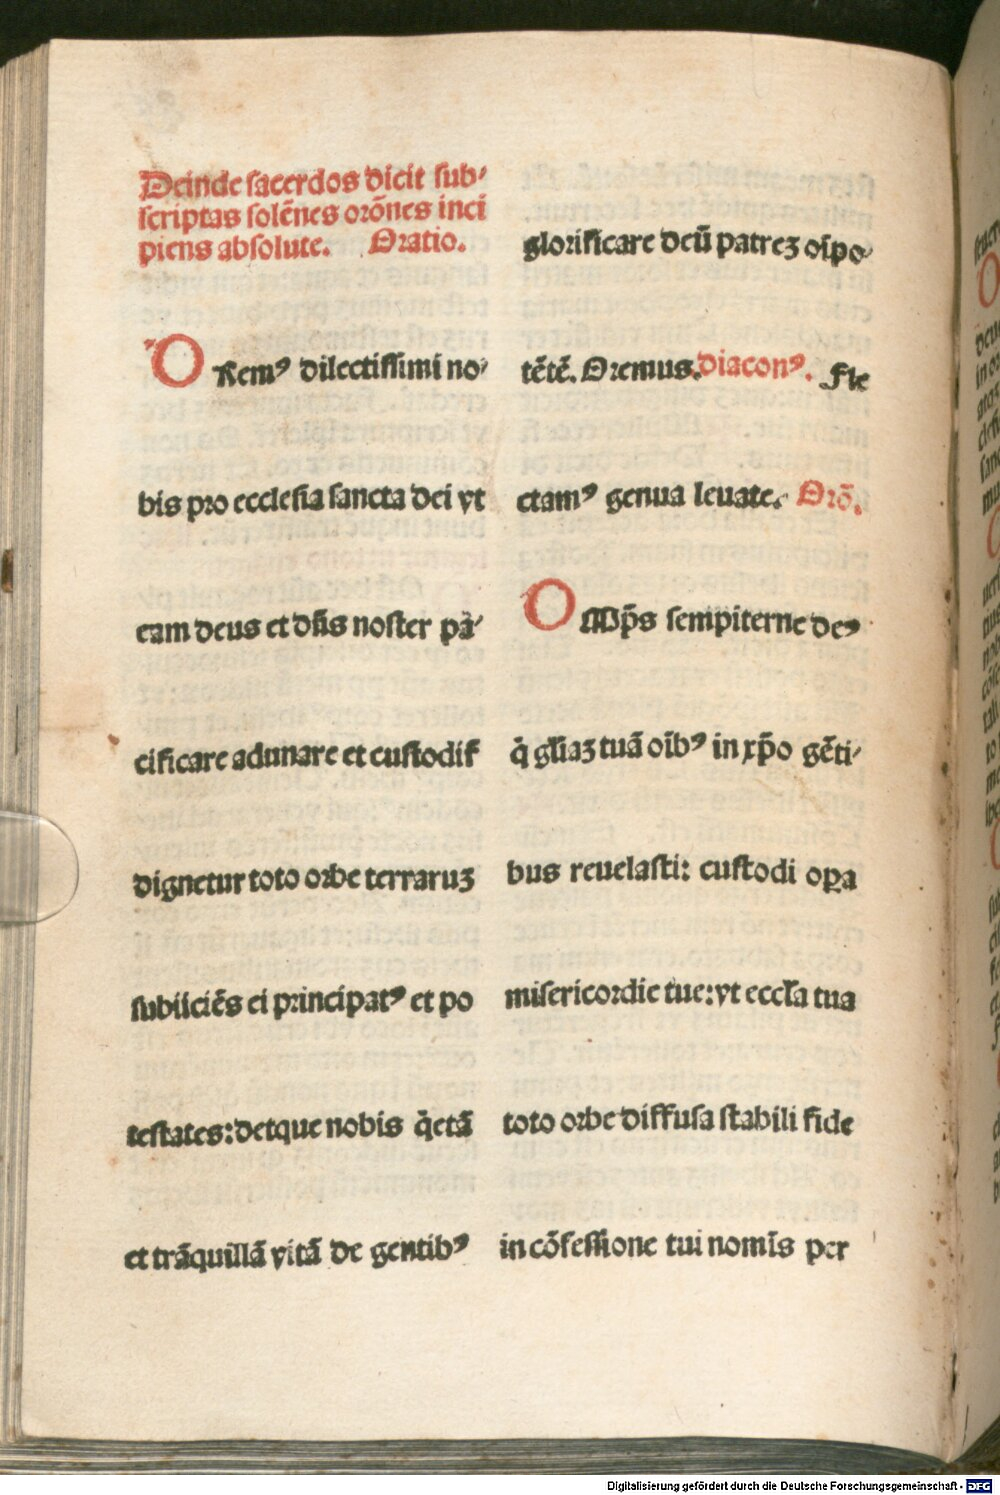 Deinde sacerdos dicit sub⸗
scriptas solēnes orōnes inci
piens absolute. Oratio.
ORemꝰ dilectissimi no⸗
bis pro ecclesia sancta dei vt
eam deus et dn̄s noster pa⸗
cificare adunare et custodir̄
dignetur toto orbe terraruꝫ
subiiciēs ei principatꝰ et po
testates: detque nobis q̇etā
et trāquillā vitā de gentibꝰ
glorificare deū patreꝫ oīpo⸗
tētē. Oremus. diaconꝰ. Fle
ctamꝰ genua leuate. Orō.
OMp̄s sempiterne deꝰ
q̇ gl̄iaꝫ tuā oībꝰ in xp̄o gēti⸗
bus reuelasti: custodi oꝑa
misericordie tue: vt eccl̄a tua
toto orbe diffusa stabili fide
in cōfessione tui nomīs per
Digitalisierung gefördert durch die Deutsche Forschungsgemeinschaft - DFG